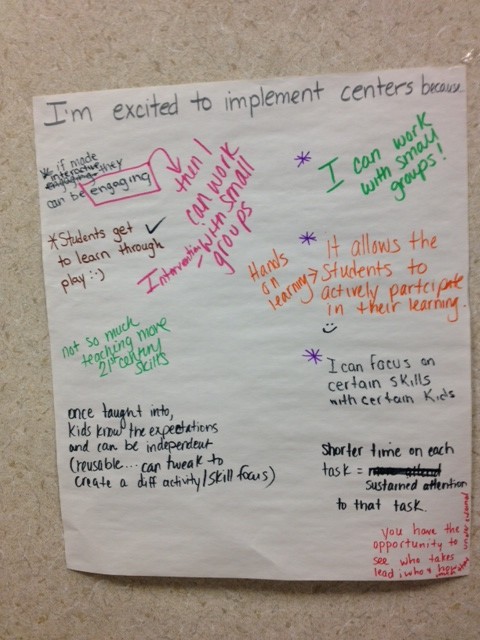 I'm excited to implement centers because
* if made
they
can be engaging
then I
can work
with small
groups
Intervention
* Students get ✓
to learn through
play :-)
not so much
teaching more
21st century
skills
once taught into,
kids know the expectations
and can be independent
(reusable... can tweak to
create a diff activity/skill focus)
* I can work
with small
groups!
Hands
on
learning →
* It allows the
students to
actively participate
in their learning.
* I can focus on
certain skills
with certain kids
Shorter time on each
task =
sustained attention
to that task.
you have the
opportunity to
see who takes
lead &